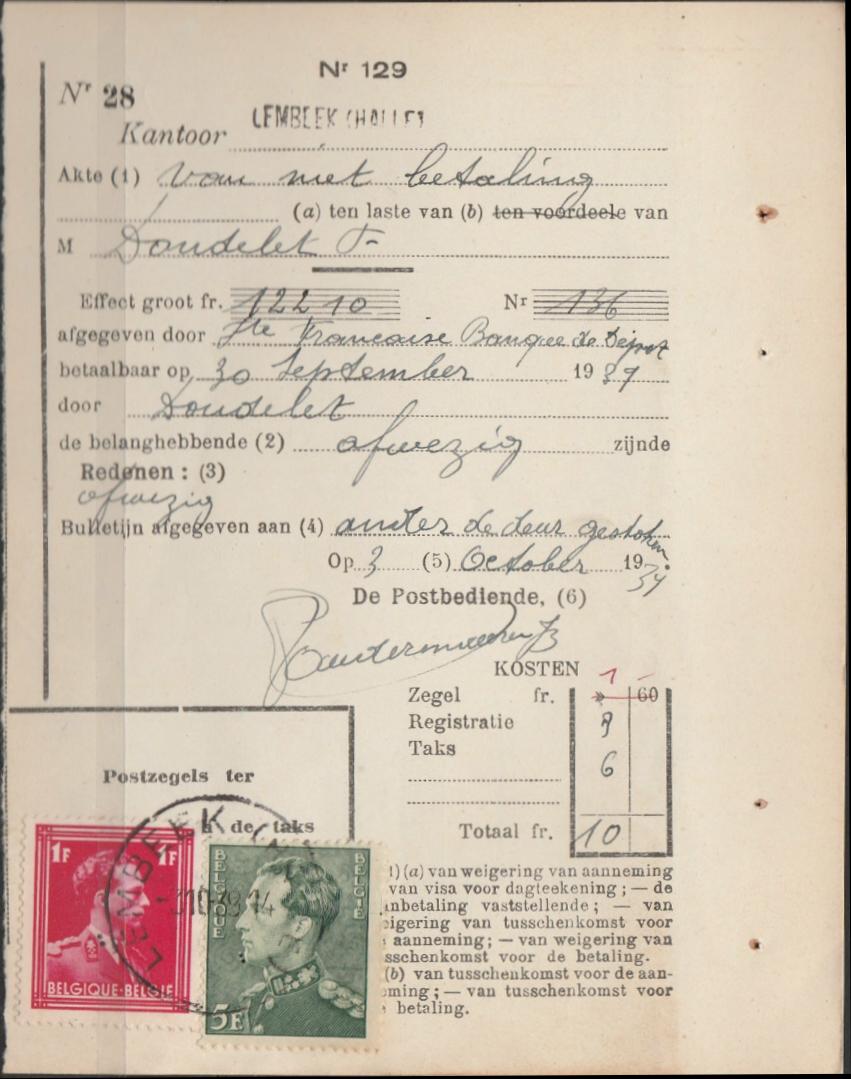 Nr 129
Nr 28
LEMBEEK (HALLE)
Kantoor
Akte (1) van niet betaling
(a) ten laste van (b) ten voordeele van
M Doudelet F-
Effect groot fr. 12210 Nr 136
afgegeven door Sté Francaise Banque de Dépot
betaalbaar op 30 September 1939
door Doudelet
de belanghebbende (2) afwezig zijnde
Redenen : (3)
afwezig
Bulletijn afgegeven aan (4) onder de deur gestoken
Op 3 (5) October 1939
De Postbediende, (6)
KOSTEN
1 -
Zegel fr. » 60
Registratie 3
Taks 6
Totaal fr. 10
Postzegels ter
de taks
LEMBEEK
-3 10-39 14
1F 1F
BELGIQUE·BELGIE
BELGIQUE BELGIË
5F
1) (a) van weigering van aanneming
van visa voor dagteekening ; — de
nbetaling vaststellende ; — van
eigering van tusschenkomst voor
aanneming ; — van weigering van
sschenkomst voor de betaling.
(b) van tusschenkomst voor de aan-
ming ; — van tusschenkomst voor
betaling.